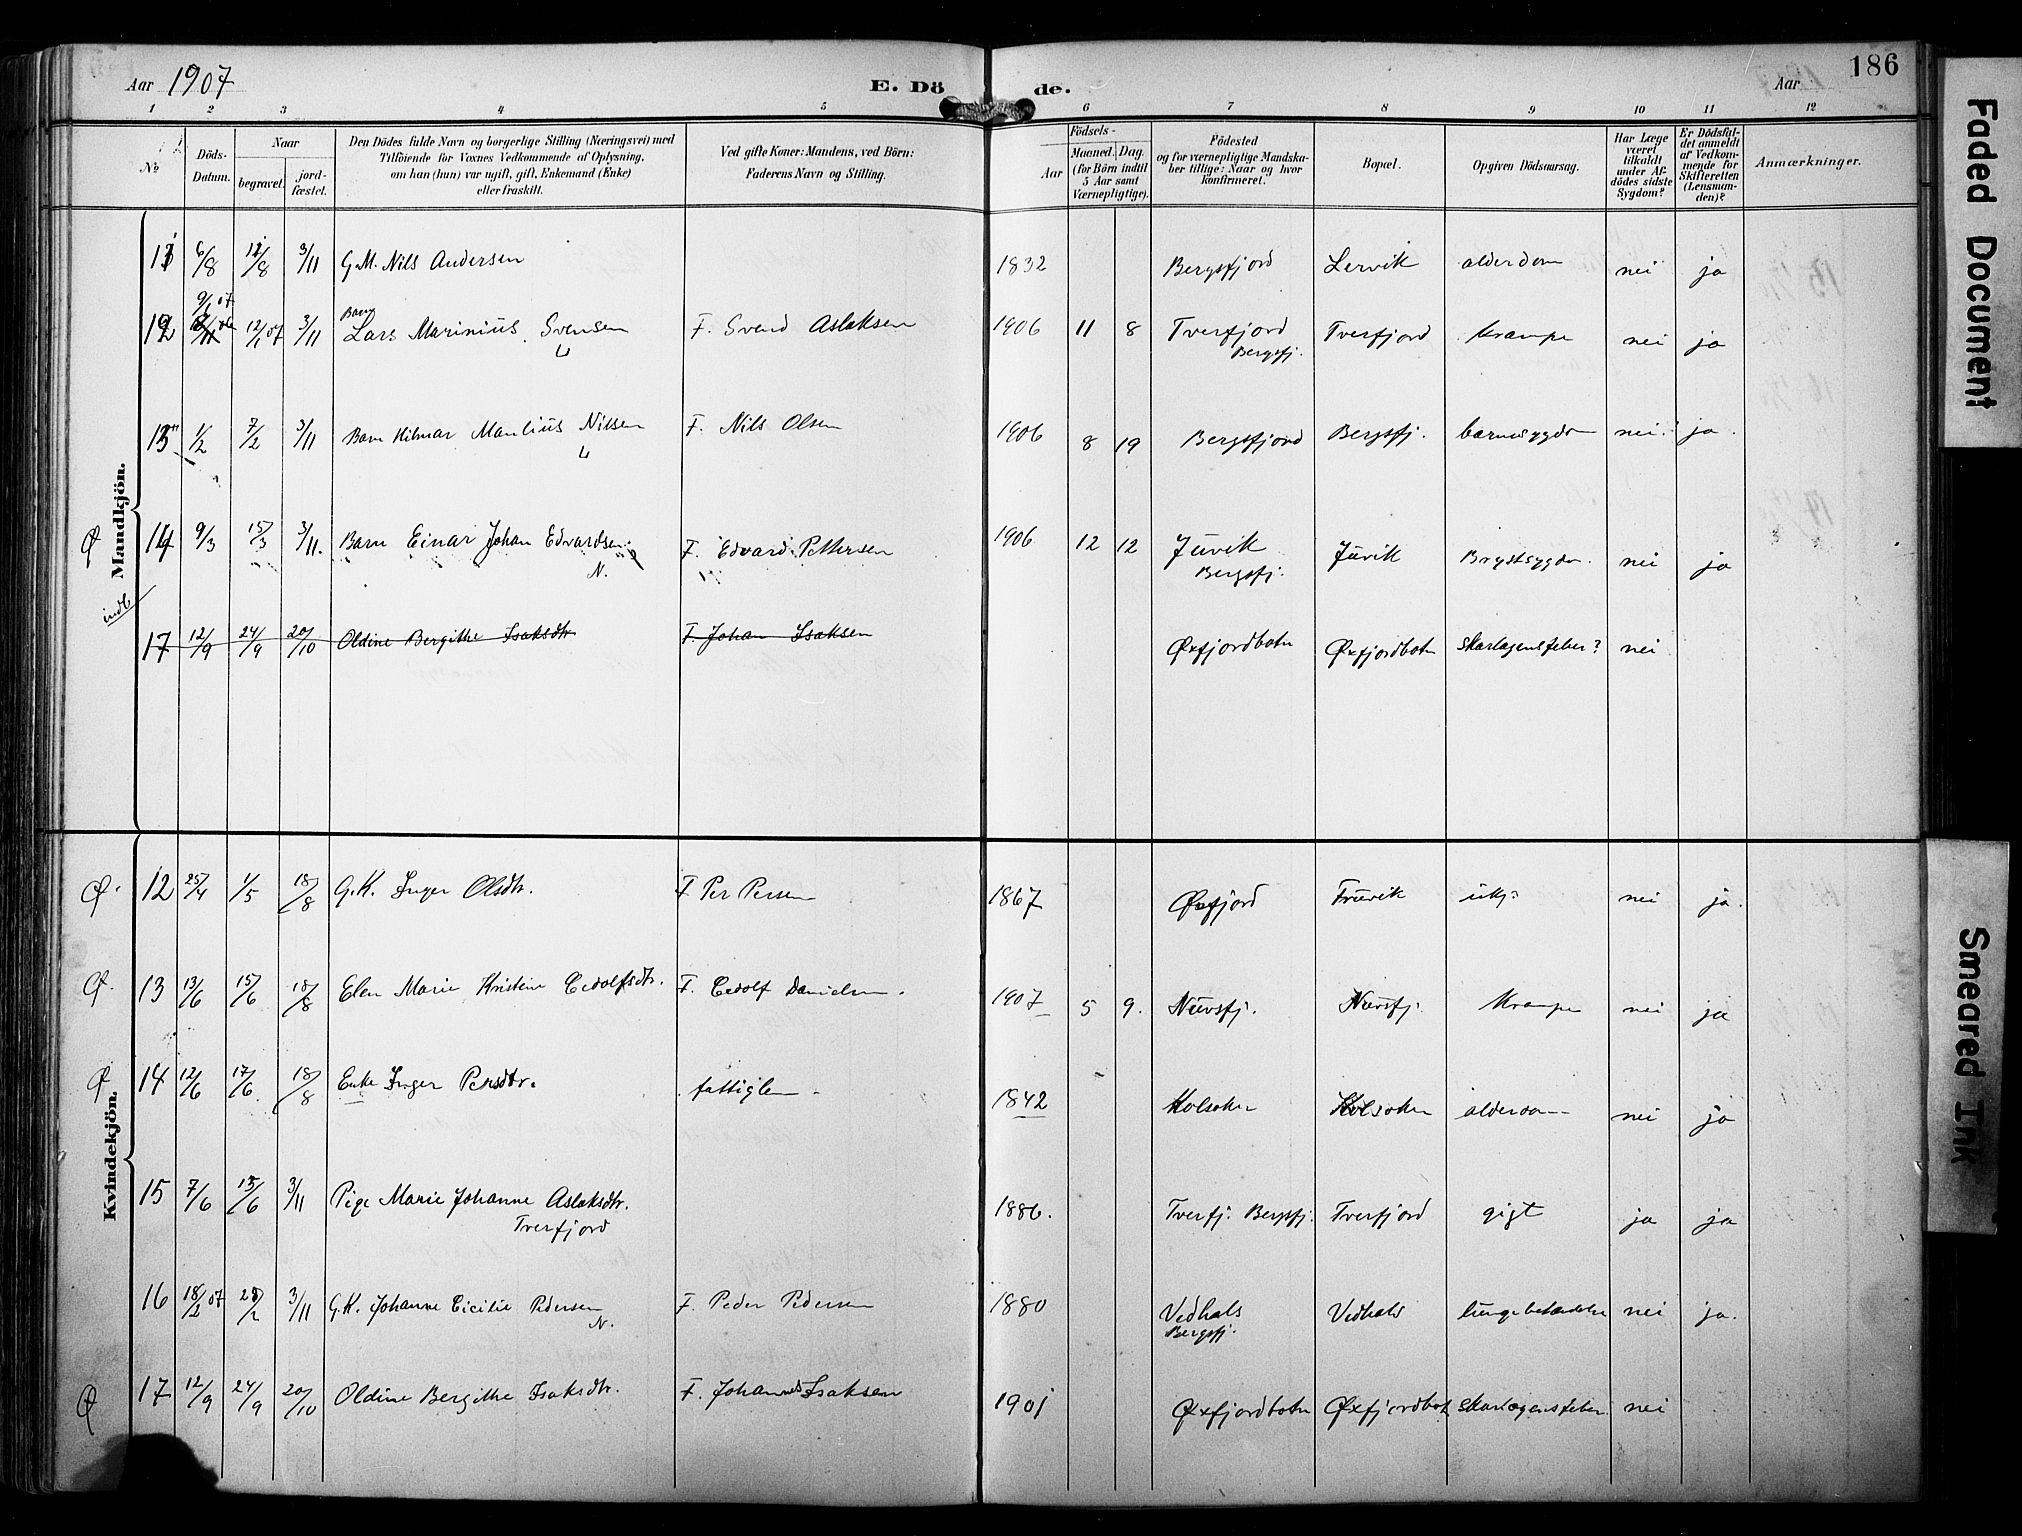 Aar 1907 E. Dö de. Aar 186
1 2 3 4 5 6 7 8 9 10 11 12
No
Döds-Datum.
Naar
begravet.
jord-fæstet.
Den Dödes fulde Navn og borgerlige Stilling (Næringsvei) med
Tilföiende for Voxnes Vedkommende af Oplysning,
om han (hun) var ugift, gift, Enkemand (Enke)
eller fraskilt.
Ved gifte Koner: Mandens, ved Börn:
Faderens Navn og Stilling.
Födsels-
Aar
Maaned. Dag.
(for Börn indtil
5 Aar samt
Værnepligtige).
Födested
og for værnepligtige Mandska-
ber tillige: Naar og hvor
konfirmeret.
Bopæl.
Opgiven Dödsaarsag.
Har Læge
været
tilkaldt
under Af-
dödes sidste
Sygdom?
Er Dödsfal-
det anmeldt
af Vedkom-
mende for
Skifteretten
(Lensman-
den)?
Anmærkninger.
Mandkjön.
11 6/8 12/8 3/11 G.M. Nils Andersen 1832 Bergsfjord Lervik alderdom nei ja
9/1 07
12 12/1 07 3/11 Barn Lars Marinius Svensen F. Svend Aslaksen 1906 11 8 Tverfjord Bergsfj. Tverfjord krampe nei ja
13 1/2 7/2 3/11 Barn Hilmar Manlius Nilsen F. Nils Olsen 1906 8 19 Bergsfjord Bergsfj. barnesygdom nei ja.
Ø 14 9/3 15/3 3/11. Barn Einar Johan Edvardsen N. F. Edvard Pettersen 1906 12 12 Jüvik Bergsfj. Jüvik Brystsygdom. nei ja
indb
17 12/9 24/9 20/10 Oldine Bergithe Isaksdtr F Johan Isaksen Øxfjordbotn Øxfjordbotn Skarlagensfeber? nei
Kvindekjön.
Ø. 12 25/4 1/5 18/8 G.K. Inger Olsdtr. F Per Persen 1867 Øxfjord Trüvik ukj. nei ja.
Ø. 13 13/6 15/6 18/8 Elen Marie Kristine Cedolfsdtr. F. Cedolf Danielsen. 1907 5 9. Nüvsfj. Nüvsfj. Krampe nei ja
Ø 14 12/6 17/6 18/8 Enke Inger Persdtr. fattiglem 1842 Kolsoker Kolsoker alderdom nei ja
15 7/6 15/6 3/11 Pige Marie Johanne Aslaksdtr. Tverfjord 1886. Tverfj. Bergsfj. Tverfjord gigt ja ja
16 18/2 07 3/11 G.K. Johanne Cicilie Pedersen N. F. Peder Pedersen 1880 Vedhals Bergsfj. Vedhals lungebetændelse nei ja.
Ø 17 12/9 24/9 20/10 Oldine Bergithe Isaksdtr. F. Johannes Isaksen 1901 Øxfjordbotn Øxfjordbot Skarlagensfeber. nei
Faded Document
Smeared Ink